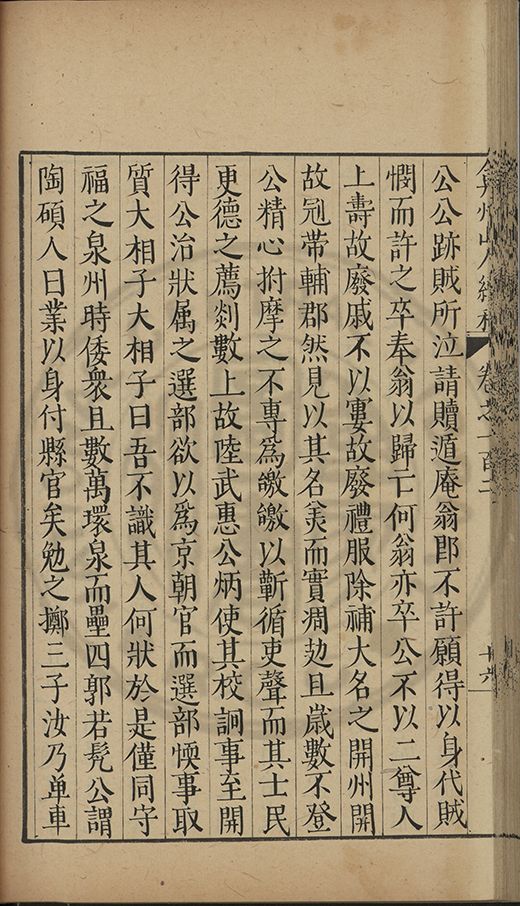 公公跡賊所泣請贖遁庵翁郎不許願得以身代賊
憫而許之卒奉翁以歸亡何翁亦卒公不以二尊人
上壽故廢戚不以寠故廢禮服除補大名之開州開
故冠帶輔郡然見以其名羙而實凋攰且歲數不登
公精心拊摩之不專為皦皦以蘄循吏聲而其士民
更德之薦剡數上故陸武惠公炳使其校詗事至開
得公治狀属之選部欲以為京朝官而選部愞事取
質大相子大相子曰吾不識其人何狀於是僅同守
福之泉州時倭衆且數萬環泉而壘四郭若髡公謂
陶碩人曰業以身付縣官矣勉之擲三子汝乃单車
弇州山人續稿 卷之一百二 十六